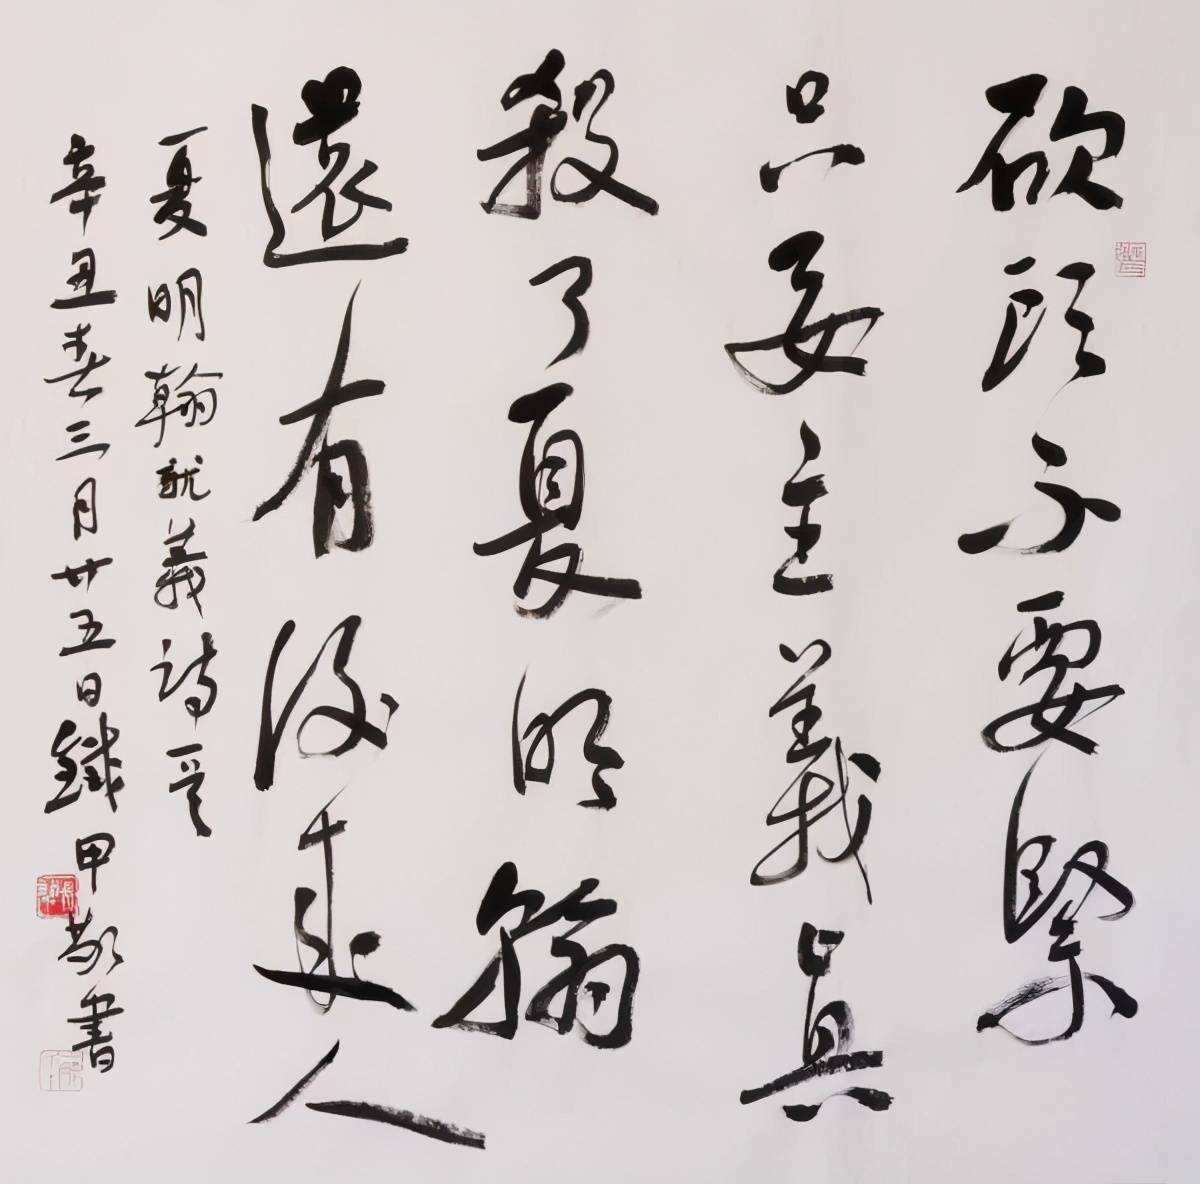 砍頭不要緊
只要主義真
殺了夏明翰
還有後來人
夏明翰就義詩一首
辛丑春三月廿五日鐵甲敬書